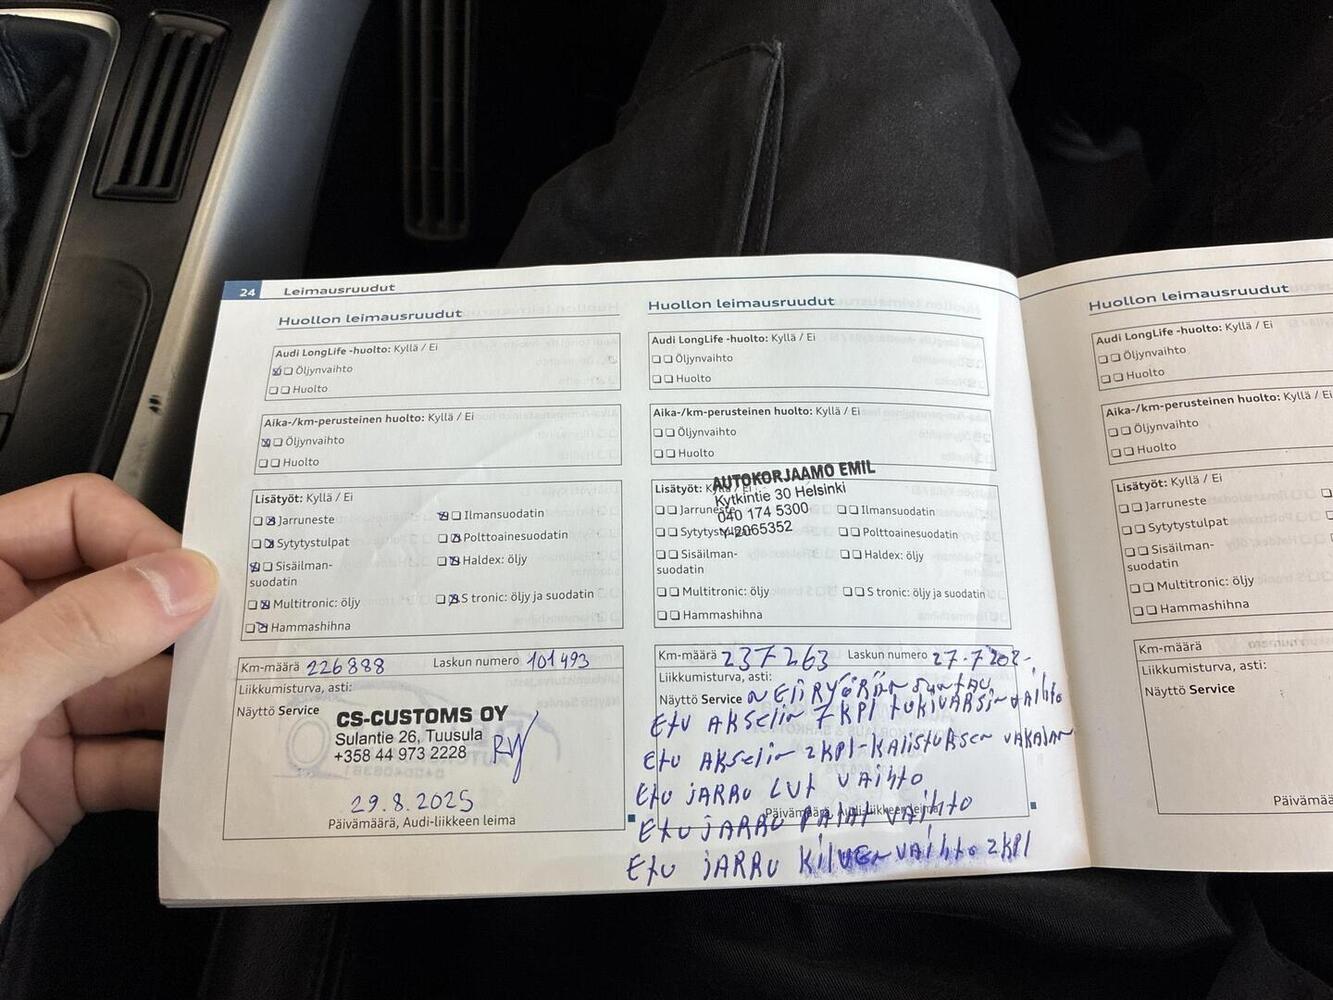 24 Leimausruudut
Huollon leimausruudut
Audi LongLife -huolto: Kyllä / Ei
Öljynvaihto
Huolto
Aika-/km-perusteinen huolto: Kyllä / Ei
Öljynvaihto
Huolto
Lisätyöt: Kyllä / Ei
Jarruneste
Ilmansuodatin
Sytytystulpat
Polttoainesuodatin
Sisäilman-
suodatin
Haldex: öljy
Multitronic: öljy
S tronic: öljy ja suodatin
Hammashihna
Km-määrä 226888 Laskun numero 101493
Liikkumisturva, asti:
Näyttö Service
CS-CUSTOMS OY
Sulantie 26, Tuusula
+358 44 973 2228
29.8.2025
Päivämäärä, Audi-liikkeen leima
Huollon leimausruudut
Audi LongLife -huolto: Kyllä / Ei
Öljynvaihto
Huolto
Aika-/km-perusteinen huolto: Kyllä / Ei
Öljynvaihto
Huolto
AUTOKORJAAMO EMIL
Kytkintie 30 Helsinki
040 174 5300
Y-2065352
Lisätyöt: Kyllä / Ei
Jarruneste
Ilmansuodatin
Polttoainesuodatin
Sisäilman-
suodatin
Haldex: öljy
Multitronic: öljy
S tronic: öljy ja suodatin
Hammashihna
Km-määrä 237263 Laskun numero 27.7
Liikkumisturva, asti:
Näyttö Service
Etu AKselin 7KPl tukivARSin vAihto
Etu AKselin 2KPl-KAllistuKsen
Etu jARRu LUt vAihto
Päivämäärä, Audi-liikkeen leima
Etu jARRu PAlAt vAihto
Etu jARRu Kilven vAihto 2KPl
Huollon leimausruudut
Audi LongLife -huolto: Kyllä / Ei
Öljynvaihto
Huolto
Aika-/km-perusteinen huolto: Kyllä / Ei
Öljynvaihto
Huolto
Lisätyöt: Kyllä / Ei
Jarruneste
Sytytystulpat
Sisäilman-
suodatin
Multitronic: öljy
Hammashihna
Km-määrä
Liikkumisturva, asti:
Näyttö Service